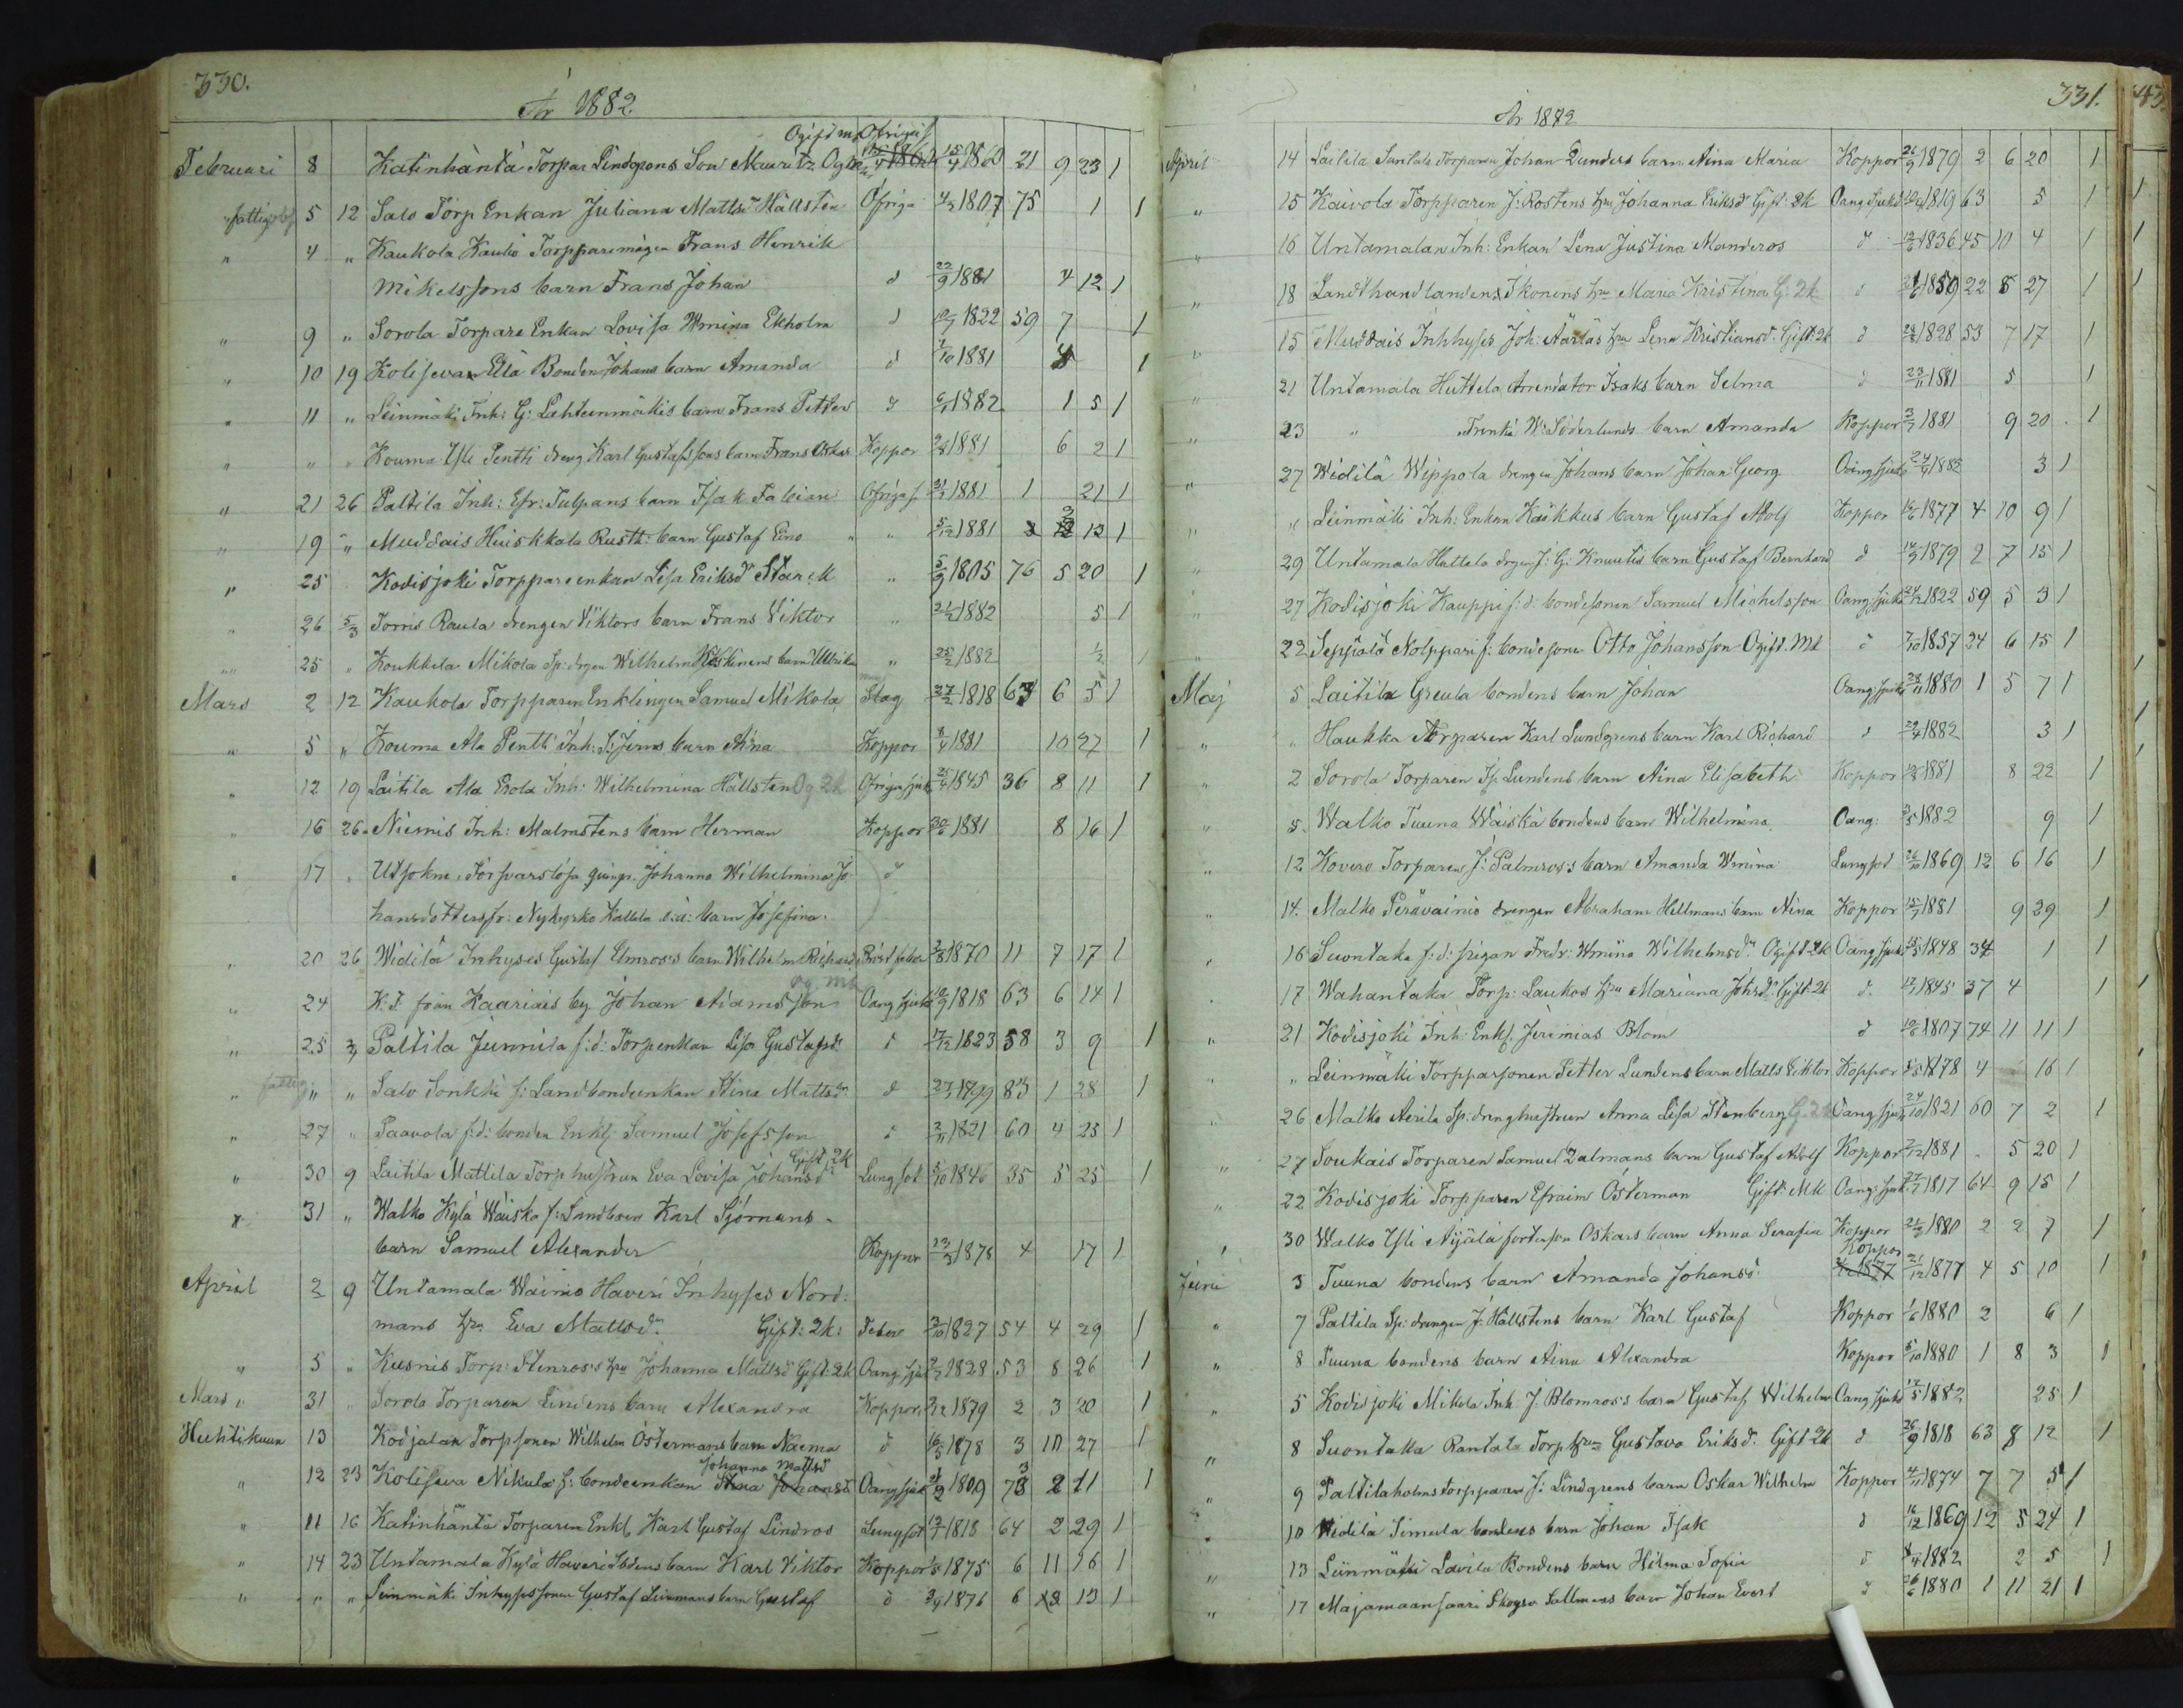 330.
År 1882
Ogift m Öfriga s
Februari 8 Katinhäntä Torpar Lindgrens Son Mauritz 15/4 1860 21 9 23 1
fattighj 5 12 Salo Torp Enkan Juliana Mattsdr Hällsten Öfriga 4/2 1807 75 1 1
" 4 " Kaukola Kauko Torpparemågen Frans Henrik
Mikelssons barn Frans Johan d 22/9 1881 4 12 1
" 9 " Sorola Torpare Enkan Lovisa Wmina Ekholm d 1822 59 7 1
" 10 19 Kolisevan Elä Bonden Johans barn Amanda d 7/10 1881 4 1
" 11 " Leinmäki Inh: G: Lehteenmäkis barn Frans Petter d 6/1 1882 1 5 1
" " " Kouma Yli Pentti dreng Karl Gustafssons barn Frans Oskar Koppor 1881 6 2 1
" 21 26 Paltila Inh: Efr: Tulpans barn Isak Fabian Öfriga s. 31/1 1881 1 21 1
" 19 " Muddais Huiskkala Rusth: barn Gustaf Eino " 5/12 1881 2 12 1
" 25 Kodisjoki Torppareenkan Lisa Eriksdr Starck " 5/9 1805 76 5 20 1
" 26 5/3 Torris Raula drengen Viktors barn Frans Viktor " 21/2 1882 5 1
" 25 " Koukkela Mikola Sp: drgen Wilhelm Koskinens barn Ulrika " 25/2 1882 1/2 1
Mars 2 12 Kaukola Torpparen Enklingen Samuel Mikola Slag 27/2 1818 63 6 5 1
" 5 " Kouma Ala Pentti Inh: J: Jerns barn Aina Koppor 8/4 1881 10 27 1
" 12 19 Laitila Ala Erola Inh: Wilhelmina Hällsten Og 2k Öfriga sjuk 25/6 1845 36 8 11 1
" 16 26 Niemis Inh: Malmstens barn Herman Koppor 30/6 1881 8 16 1
" 17 " Utsokne, Försvarslösa qvinsp. Johanna Wilhelmina Jo- d
hansdotters fr: Nykyrko Kallela o:ä: barn Josefina.
" 20 26 Widilä Inhyses Gustaf Elmros's barn Wilhelm Richard Bröst feber 3/8 1870 11 7 17 1
Og Mk
" 24 K.I. från Kaariais by Johan Adamsson Oang sjuk 10/9 1818 63 6 14 1
" 25 2/4 Paltila Junnila f:d: Torpenkan Lisa Gustafsdr d 17/12 1823 58 3 9 1
" fattig " " Salo Sonkki f: Landbondeenkan Stina Mattsdr d 27/1 1799 83 1 28 1
" 27 " Paavola f:d: bonden Enkl: Samuel Josefsson d 2/11 1821 60 4 25 1
Gift 2k
" 30 9 Laitila Mattila Torp hustrun Eva Lovisa Johansdr Lungsot 5/10 1846 35 5 25 1
" 31 " Walko Kylä Wäiskä f: Landboen Karl Sjömans
barn Samuel Alexander Koppor 13/3 1878 4 17 1
April 2 9 Untamala Wainio Haveri Inhyses Nord:
mans hru Eva Mattsdr Gift: 2k: Feber 3/10 1827 54 4 29 1
" 5 " Kusnis Torp: Stenros's hru Johanna Mattsdr Gift: 2k Oang. sjuk 1828 53 8 26 1
Mars " 31 " Sorola Torparen Lindens barn Alexandra Koppor 1879 2 3 20 1
Huhtikuun 13 Kodjalan Torpsonen Wilhelm Östermans barn Naema d 16/5 1878 3 10 27 1
Johanna Mattsd
" 12 23 Koliseva Nikula f: bondeenkan Stina Johansd Oang sjuk 1/2 1809 73 2 11 1
" 11 16 Katinhäntä Torparen Enkl: Karl Gustaf Lindros Lungsot 12/1 1818 64 2 29 1
" 14 23 Untamala Kylä Haveri Isdens barn Karl Viktor Koppor 1875 6 11 16 1
" " " Leinmäki Inhysessonen Gustaf Leinmans barn Gustaf d 1876 6 13 1
331.
År 1882
April 14 Laitila Santala Torparen Johan Dunders barn Aina Maria Koppor 26/9 1879 2 6 20 1
" 15 Kaivola Torpparen J: Rostens hru Johanna Eriksdr Gift: 2k Oang. sjukd 1819 63 5 1
" 16 Untamalan Inh: Enkan Lena Justina Manderos d 12/6 1836 45 10 4 1
" 18 Landthandlandens Ikonens hru Maria Kristina G: 2k d 1859 22 8 27 1
" 15 Muddais Inhhyses Joh: Äärläs hru Lena Kristiansdr Gift: 2k d 28/8 1828 53 7 17 1
" 21 Untamala Huttela Arrendator Isaks barn Selma d 23/11 1881 5 1
" 23 " " Trenki W: Söderlunds barn Amanda Koppor 3/7 1881 9 20 1
" 27 Widilä Wippola drengen Johans barn Johan Georg Oäng sjuk 24/4 1882 3 1
" " Leinmäki Inh: Enkan Käkkus barn Gustaf Adolf Koppor 1877 4 10 9 1
" 29 Untamala Huttala drgen J: G: Knuutis barn Gustaf Bernhard d 14/9 1879 2 7 15 1
" 27 Kodisjoki Kauppi f: d: bondesonen Samuel Michelsson Oang sjuk 24/11 1822 59 5 3 1
" 22 Seppälä Nolppari f: bondesonen Otto Johansson Ogift. Mk d 7/10 1857 24 6 15 1
Maj 5 Laitila Greula bondens barn Johan Oang sjuk 28/11 1880 1 5 7 1
" " Haukka Torparen Karl Lundgrens barn Karl Richard d 29/4 1882 3 1
" 2 Sorola Torparen Is. Lundens barn Aina Elisabeth Koppor 1881 8 22 1
" 5 Walko Tuuna Wäiskä bondens barn Wilhelmina Oang: 2/5 1882 9 1
" 12 Kovero Torparen J: Palmros's barn Amanda Wmina Lungsot 26/10 1869 12 6 16 1
" 14. Malko Perävainio drengen Abraham Hellmans barn Aina Koppor 15/7 1881 9 29 1
" 16 Suontaka f: d: pigan Fredr: Wmina Wilhelmsdr Ogift 2k Oang sjuk 15/5 1848 34 1 1
" 17 Wahantaka Torp: Laukos hru Mariana Johsdr Gift: 2k d. 17/1 1845 37 4 1
" 21 Kodisjoki Inh: Enkl. Jeremias Blom d 10/6 1807 74 11 11 1
" " Leinmäki Torpparsonen Petter Lundens barn Matts Viktor Koppor 5/5 1878 4 16 1
" 26 Malko Aerila Sp: drenghustrun Anna Lisa Stenberg G. 2k Oang sjuk 24/10 1821 60 7 2 1
" 27 Soukais Torparen Samuel Zalmans barn Gustaf Adolf Koppor 7/12 1881 5 20 1
" 22 Kodisjoki Torpparen Efraim Österman Gift: Mk Oang: sjuk 27/7 1817 64 9 15 1
" 30 Walko Yli Äijälä Oskars barn Anna Serafia Koppor 21/3 1880 2 2 7 1
Koppor
Juni 3 Tuuna bondens barn Amanda Johansd. 21/12 1877 4 5 10 1
" 7 Paltila Sp: drengen J: Hällstens barn Karl Gustaf Koppor 1/6 1880 2 6 1
" 8 Tuuna bondens barn Aina Alexandra Koppor 5/10 1880 1 8 3 1
" 5 Kodisjoki Mikola Inh: J: Blomros's barn Gustaf Wilhelm Oang sjuk 12/5 1882 25 1
" 8 Suontaka Rantala Torp hru Gustava Eriksd. Gift 2k d 26/9 1818 63 8 12 1
" 9 Paltilaholms torpparen J: Lindgrens barn Oskar Wilhelm Koppor 4/11 1874 7 7 5 1
" 10 Widilä Simula bondens barn Johan Isak d 16/12 1869 12 5 24 1
" 13 Leinmäki Lavila Bondens barn Hilma Sofia d 8/4 1882 2 5 1
" 17 Majamaansaari Skogsv Sallmens barn Johan Evert d 26/6 1880 1 11 21 1